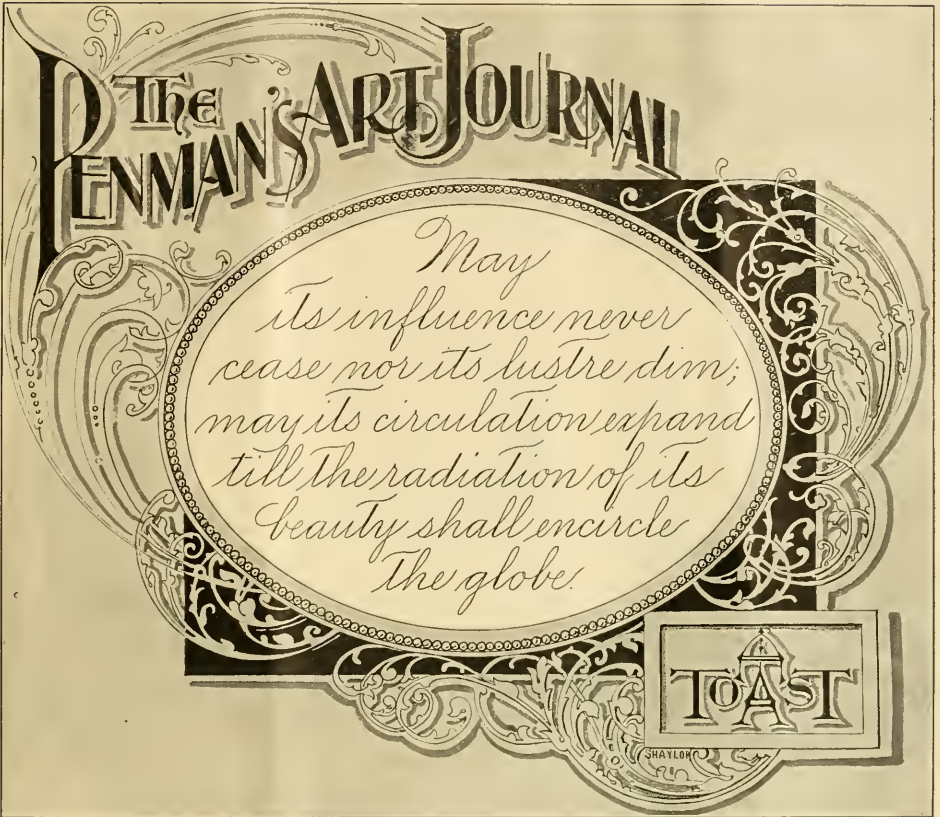 THE
PENMAN'S ART JOURNAL
May
its influence never
cease nor its lustre dim;
may its circulation expand
till the radiation of its
beauty shall encircle
the globe.
A
TOAST
SHAYLOR